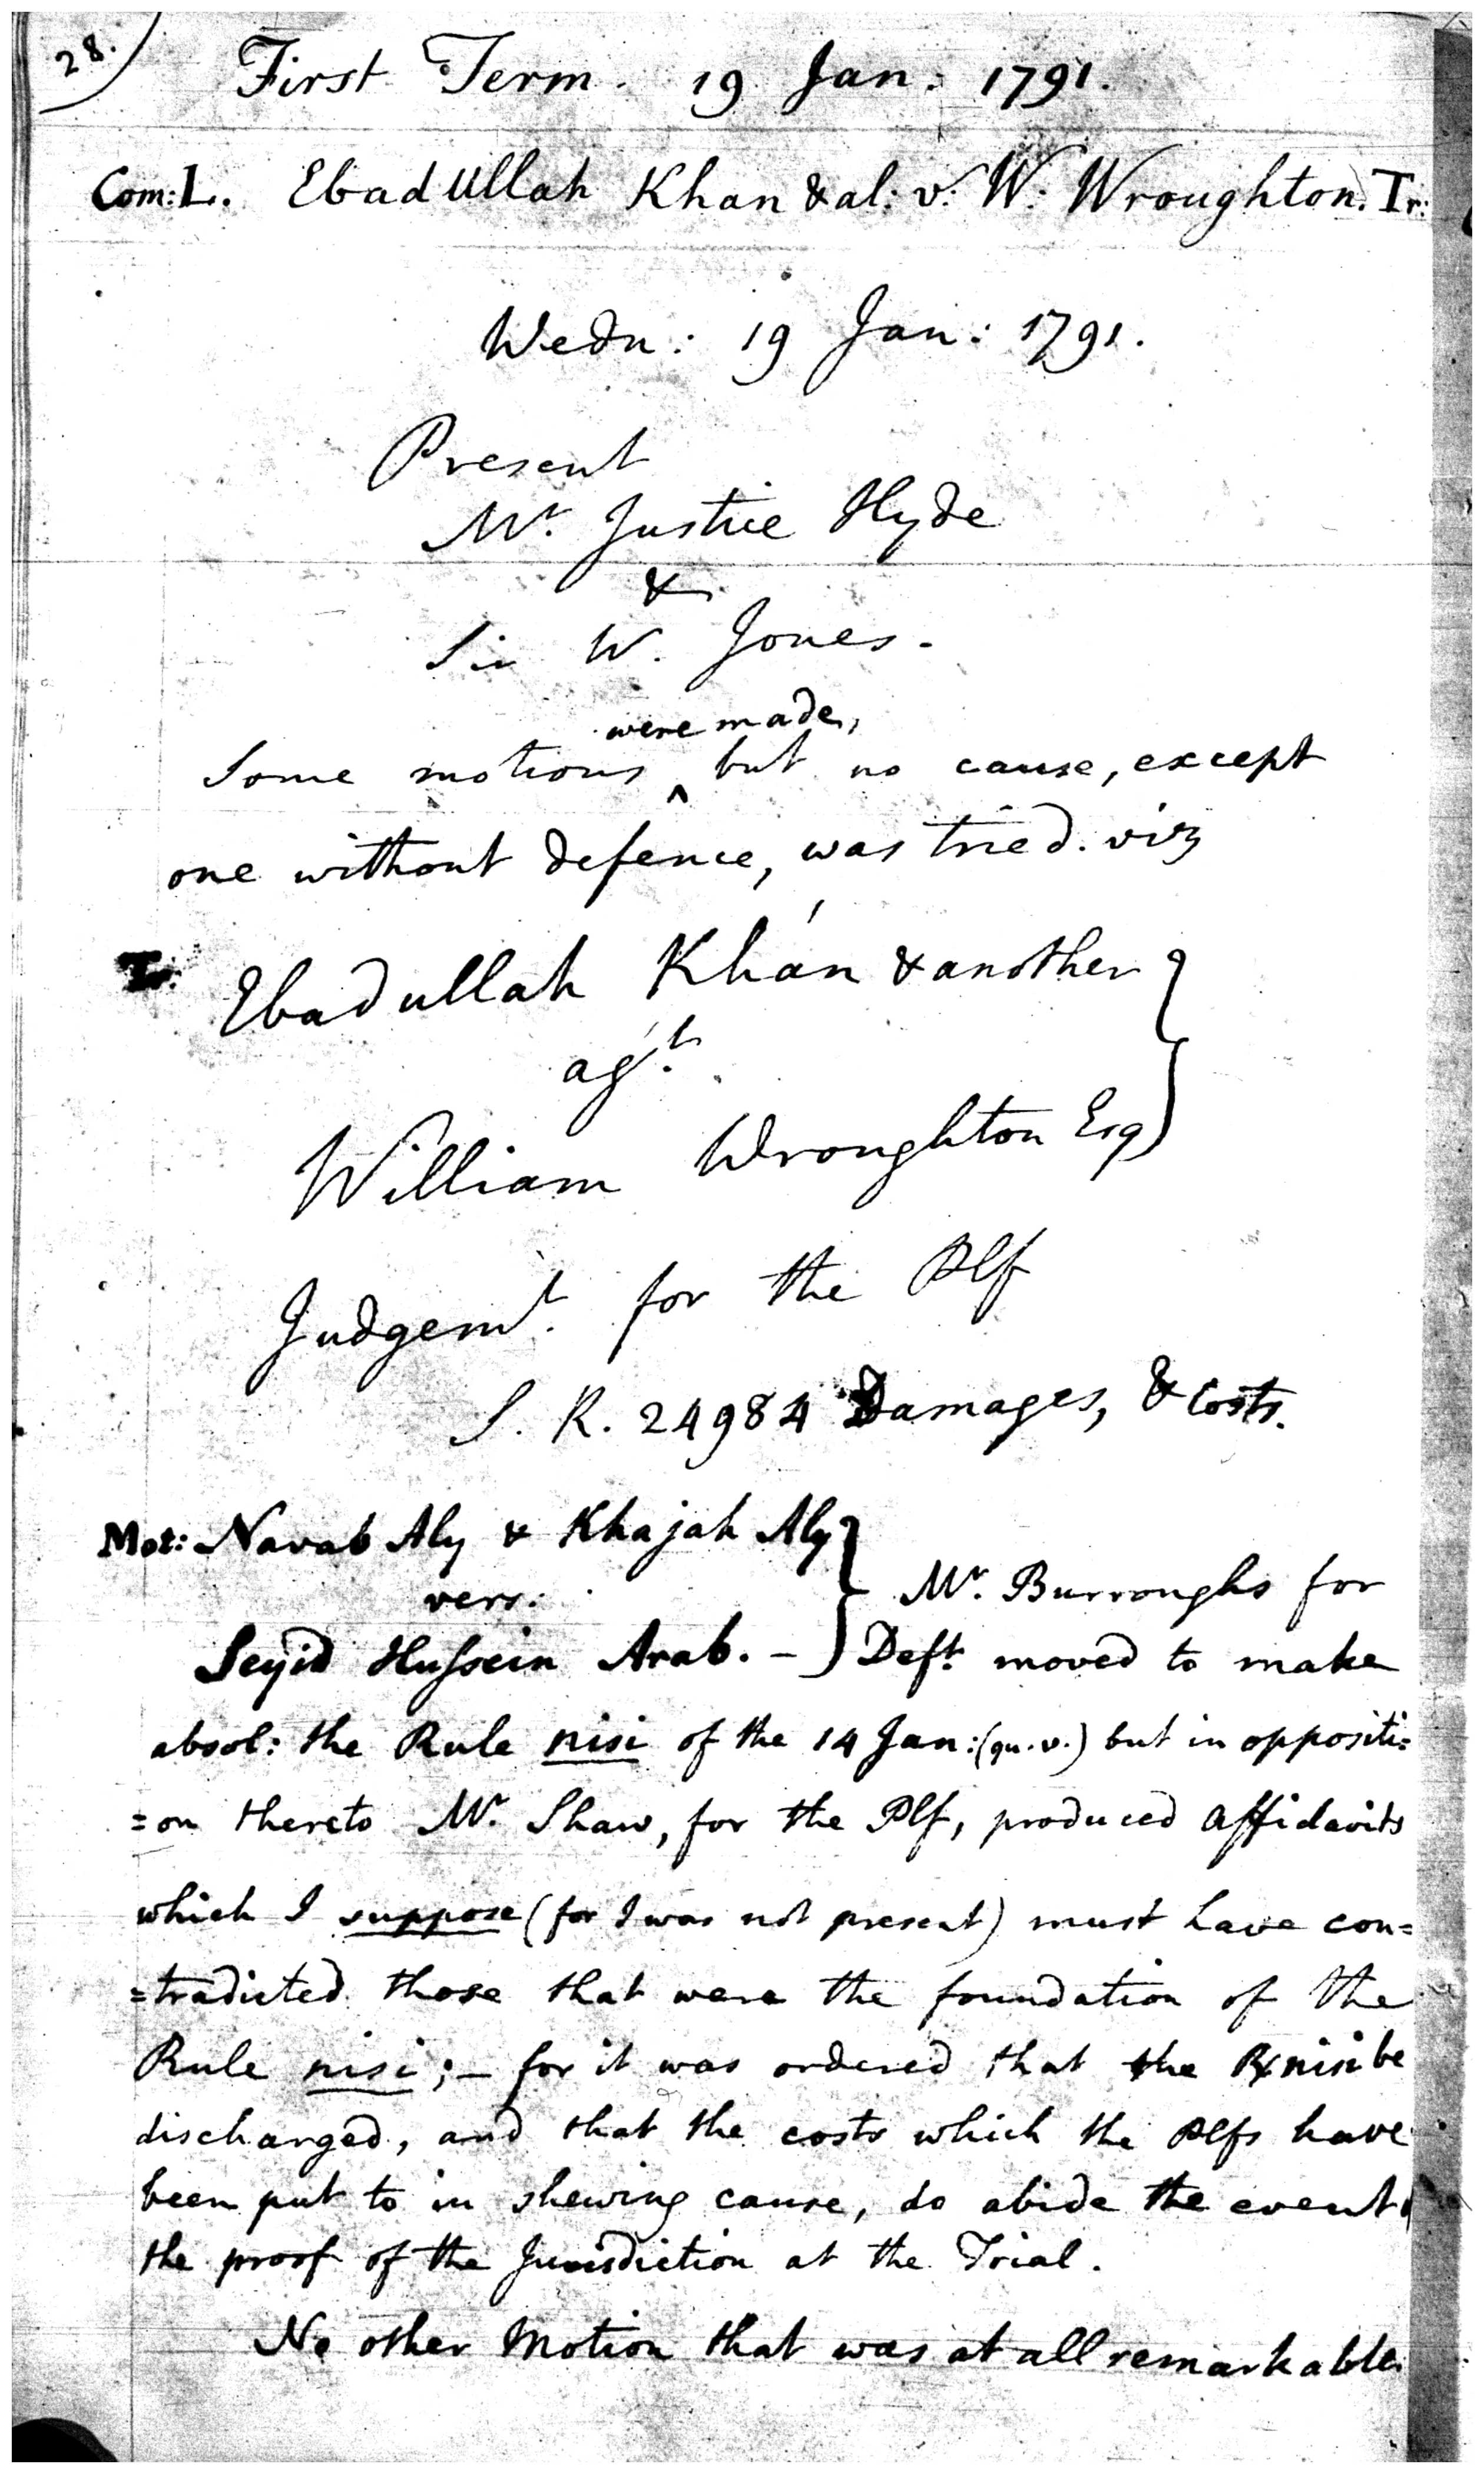 28.
First Term. 19 Jan: 1791.
Com: L. Ebadullah Khan & al: v. W. Wroughton. Tr:
Wedn: 19 Jan: 1791.
Present
Mr. Justice Hyde
&
Sir W. Jones.
were made,
Some motions ^ but no cause, except
one without defence, was tried. viz
Tr: Ebadullah Khán & another }
agt.
William Wroughton Esq }
Judgemt. for the Plf
S. R. 24984 Damages, & Costs.
Mot: Navab Aly & Khajah Aly }
vers: Mr. Burroughs for
Seyid Hussein Arab. - } Deft. moved to make
absol: the Rule nisi of the 14 Jan: (qu. v.) but in oppositi=
=on thereto Mr. Shaw, for the Plf, produced affidavits
which I suppose (for I was not present) must have con=
=tradicted those that were the foundation of the
Rule nisi; - for it was ordered that the R nisi be
discharged, and that the costs which the Plfs have
been put to in shewing cause, do abide the event
the proof of the Jurisdiction at the Trial.
No other Motion that was at all remarkable.